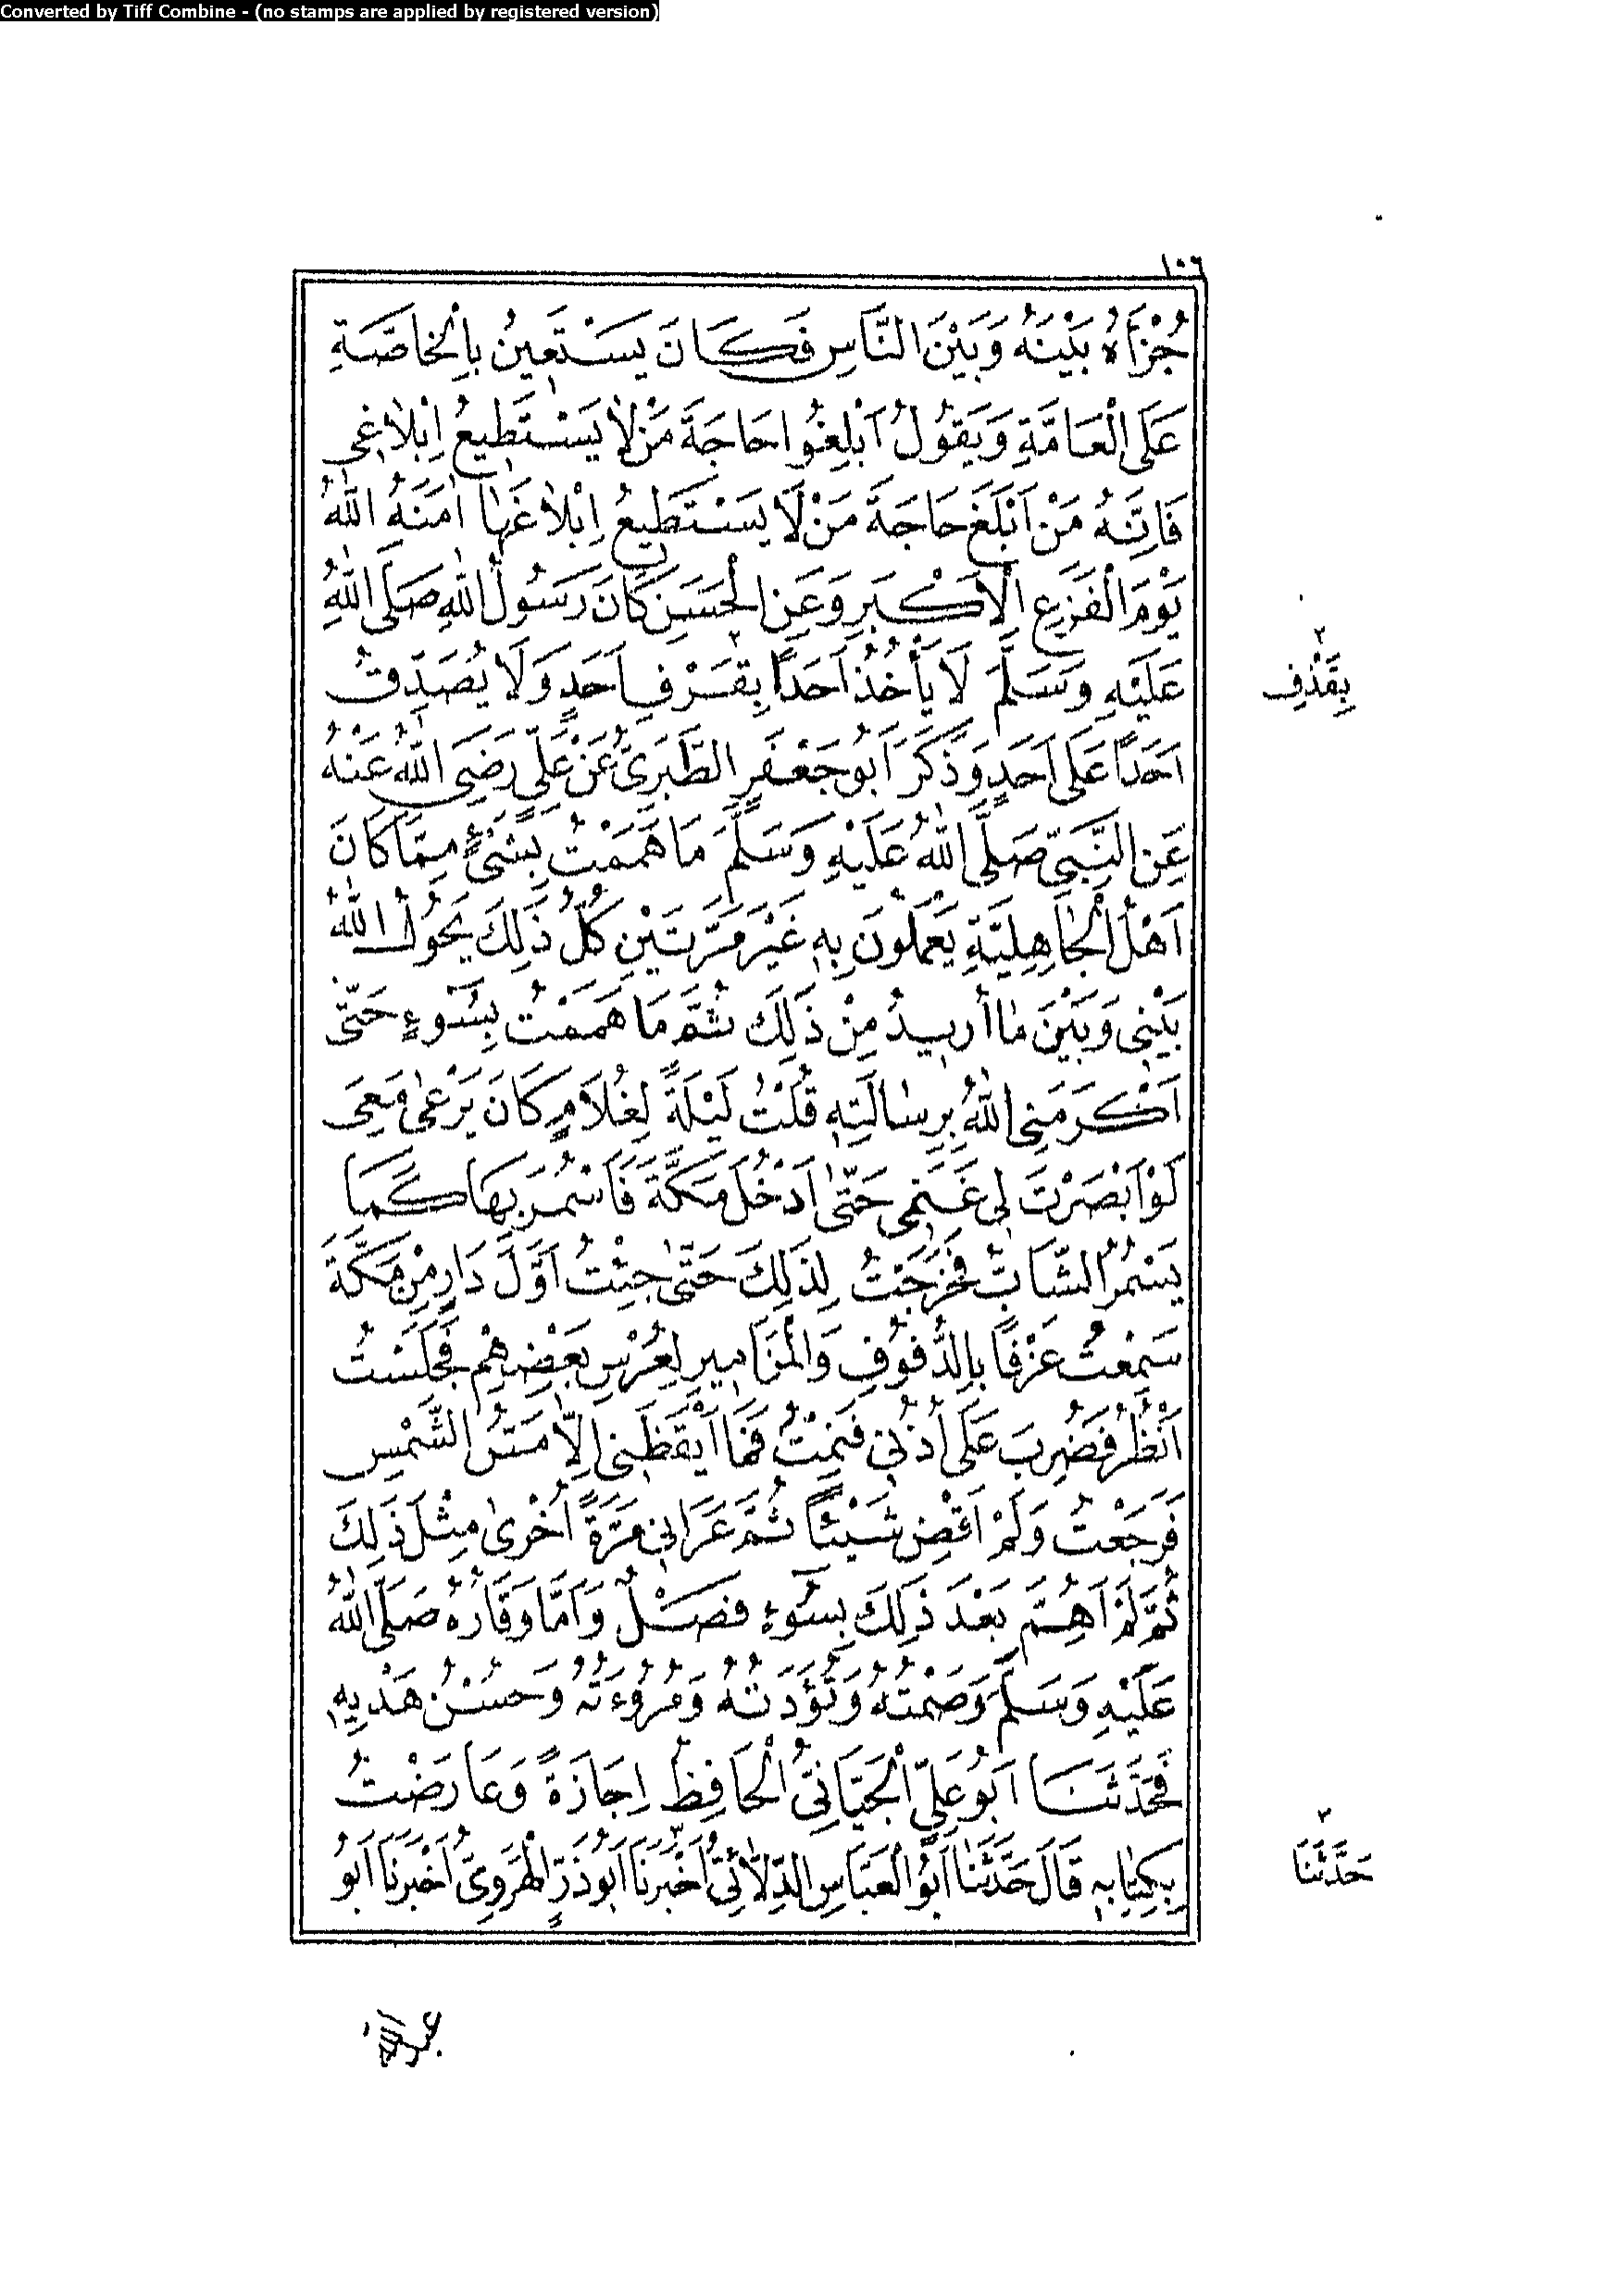 Converted by Tiff Combine - (no stamps are applied by registered version)
١٠٦
جُزْأَهُ بَيْنَهُ وَبَيْنَ النَّاسِ فَكَانَ يَسْتَعِينُ بِالْخَاصَّةِ
عَلَى الْعَامَّةِ وَيَقُولُ اَبْلِغُوا حَاجَةَ مَنْ لَا يَسْتَطِيعُ اِبْلَاغِى
فَاِنَّهُ مَنْ اَبْلَغَ حَاجَةَ مَنْ لَا يَسْتَطِيعُ اِبْلَاغَهَا آمَنَهُ اللّٰهُ
يَوْمَ الْفَزَعِ الْاَكْبَرِ وَعَنِ الْحَسَنِ كَانَ رَسُولُ اللّٰهِ صَلَّى اللّٰهُ
عَلَيْهِ وَسَلَّمَ لَا يَأْخُذُ اَحَدًا بِقَرْفِ اَحَدٍ وَلَا يُصَدِّقُ
٢
بِقَذْفِ
اَحَدًا عَلَى اَحَدٍ وَذَكَرَ اَبُو جَعْفَرٍ الطَّبَرِىُّ عَنْ عَلِىٍّ رَضِىَ اللّٰهُ عَنْهُ
عَنِ النَّبِىِّ صَلَّى اللّٰهُ عَلَيْهِ وَسَلَّمَ مَا هَمَمْتُ بِشَىْءٍ مِمَّا كَانَ
اَهْلُ الْجَاهِلِيَّةِ يَعْمَلُونَ بِهِ غَيْرَ مَرَّتَيْنِ كُلُّ ذٰلِكَ يَحُولُ اللّٰهُ
بَيْنِى وَبَيْنَ مَا أُرِيدُ مِنْ ذٰلِكَ ثُمَّ مَا هَمَمْتُ بِسُوٓءٍ حَتّٰى
اَكْرَمَنِى اللّٰهُ بِرِسَالَتِهِ قُلْتُ لَيْلَةً لِغُلَامٍ كَانَ يَرْعٰى مَعِىَ
لَوْ اَبْصَرْتَ لِى غَنَمِى حَتّٰى اَدْخُلَ مَكَّةَ فَاَسْمُرَ بِهَا كَمَا
يَسْمُرُ الشَّابُّ فَخَرَجْتُ لِذٰلِكَ حَتّٰى جِئْتُ اَوَّلَ دَارٍ مِنْ مَكَّةَ
سَمِعْتُ عَزْفًا بِالدُّفُوفِ وَالْمَزَامِيرِ لِعُرْسِ بَعْضِهِمْ فَجَلَسْتُ
اَنْظُرُ فَضُرِبَ عَلَى اُذُنِى فَنِمْتُ فَمَا اَيْقَظَنِى اِلَّا مَسُّ الشَّمْسِ
فَرَجَعْتُ وَلَمْ اَقْضِ شَيْئًا ثُمَّ عَرَانِى مَرَّةً اُخْرٰى مِثْلُ ذٰلِكَ
ثُمَّ لَمْ اَهُمَّ بَعْدَ ذٰلِكَ بِسُوٓءٍ فَصْلٌ وَاَمَّا وَقَارُهُ صَلَّى اللّٰهُ
عَلَيْهِ وَسَلَّمَ وَصَمْتُهُ وَتُؤَدَتُهُ وَمُرُوءَتُهُ وَحُسْنُ هَدْيِهِ
فَحَدَّثَنَا اَبُو عَلِىٍّ الْجَيَّانِىُّ الْحَافِظُ اِجَازَةً وَعَارَضْتُ
بِكِتَابِهِ قَالَ حَدَّثَنَا اَبُو الْعَبَّاسِ الدِّلَائِىُّ اَخْبَرَنَا اَبُو ذَرٍّ الْهَرَوِىُّ اَخْبَرَنَا اَبُو
٢
حَدَّثَنَا